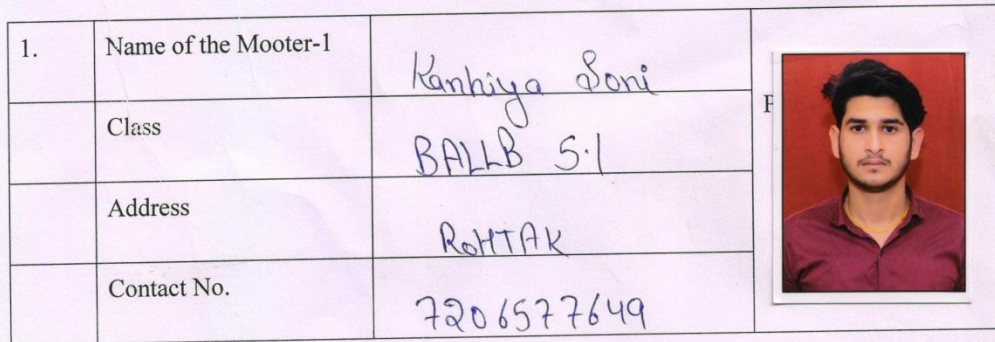 1. Name of the Mooter-1 Kanhiya Soni
Class BALLB 5.1
Address ROHTAK
Contact No. 7206577649